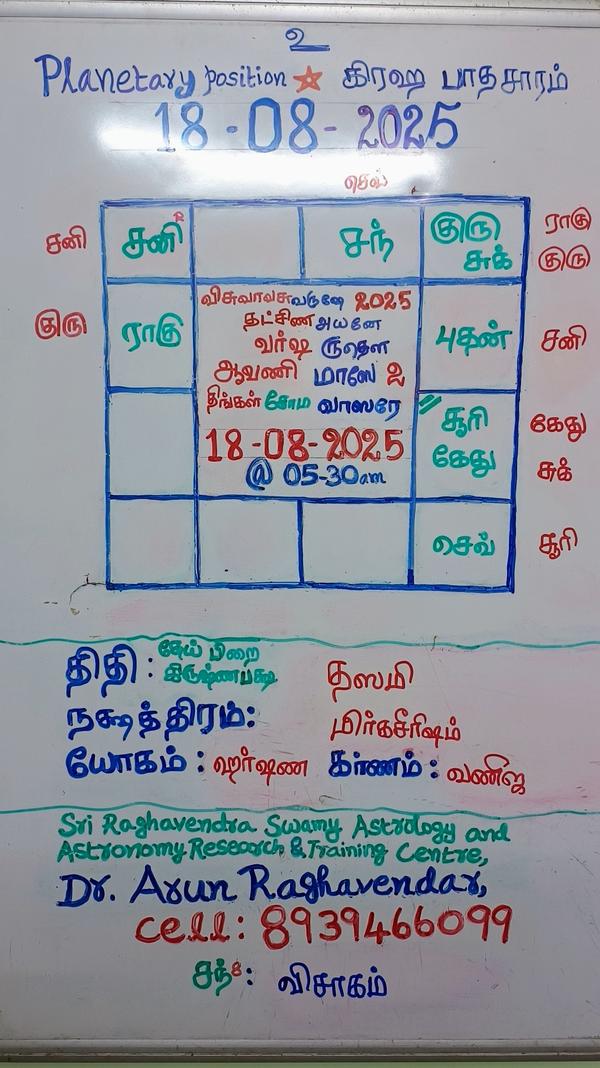 உ
Planetary position ☆ கிரஹ பாதசாரம்
18-08-2025
செவ்
சனி சனி R சந் குரு ராகு
சுக் குரு
குரு ராகு புதன் சனி
விசுவாவசுவருஷே 2025
தட்சிண அயனே
வர்ஷ ருதௌ
ஆவணி மாஸே 2
திங்கள் சோம வாஸரே
18-08-2025
@ 05-30am
சூரி கேது
கேது சுக்
செவ் சூரி
திதி : தேய் பிறை
கிருஷ்ணபக்ஷ தஸமி
நக்ஷத்திரம்: மிர்கசீரிஷம்
யோகம் : ஹர்ஷண கர்ணம் : வணிஜ
Sri Raghavendra Swamy Astrology and
Astronomy Research & Training Centre,
Dr. Arun Raghavendar,
cell: 8939466099
சந் 8 : விசாகம்